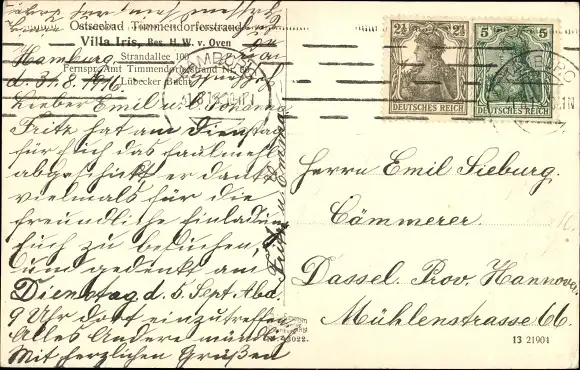 Ostseebad Timmendorferstrand
Villa Iris, Bes. H. W. v. Oven
Strandallee 100
Fernspr. Amt Timmendorferstrand Nr.
Lübecker Bucht
Hamburg
d. 31.8.1916.
Lieber Emil u.
Fritz hat am Dienstag
für sich das
abgeschickt er dankt
vielmals für die
freundliche Einladung
Euch zu besuchen
und gedenkt am
Dienstag d. 5. Sept. Abd.
9 Uhr dort einzutreffen
Alles Andere mündlich
Mit herzlichen Grüßen
2½ 2½
DEUTSCHES REICH
5 5
DEUTSCHES REICH
HAMBURG
Herrn Emil Sieburg.
Cämmerer.
Dassel. Prov. Hannover
Mühlenstrasse 66.
13 21904